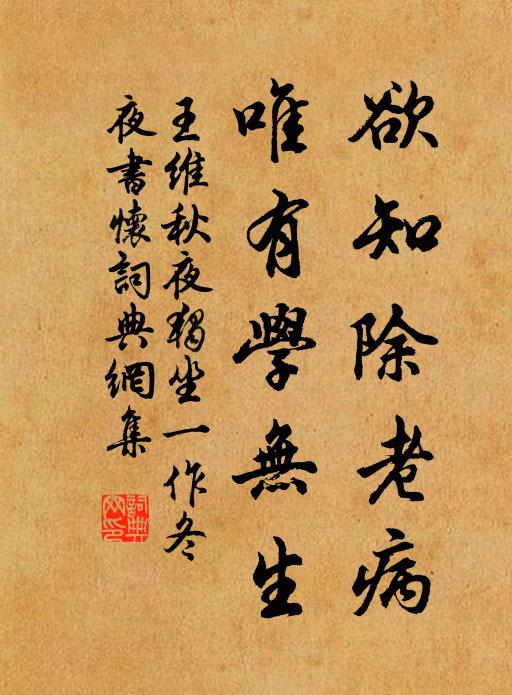 欲知除老病
唯有學無生
王維秋夜獨坐一作冬
夜書懷詞典網集
詞典網印